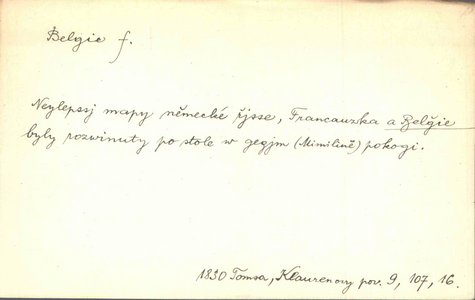 Belgie f.
Neylepssj mapy německé řjsse, Francauzka a Belgie
byly rozwinuty po stole w gegjm (Mimilině) pokogi.
1830 Tomsa, Klaurenovy pov. 9, 107, 16.